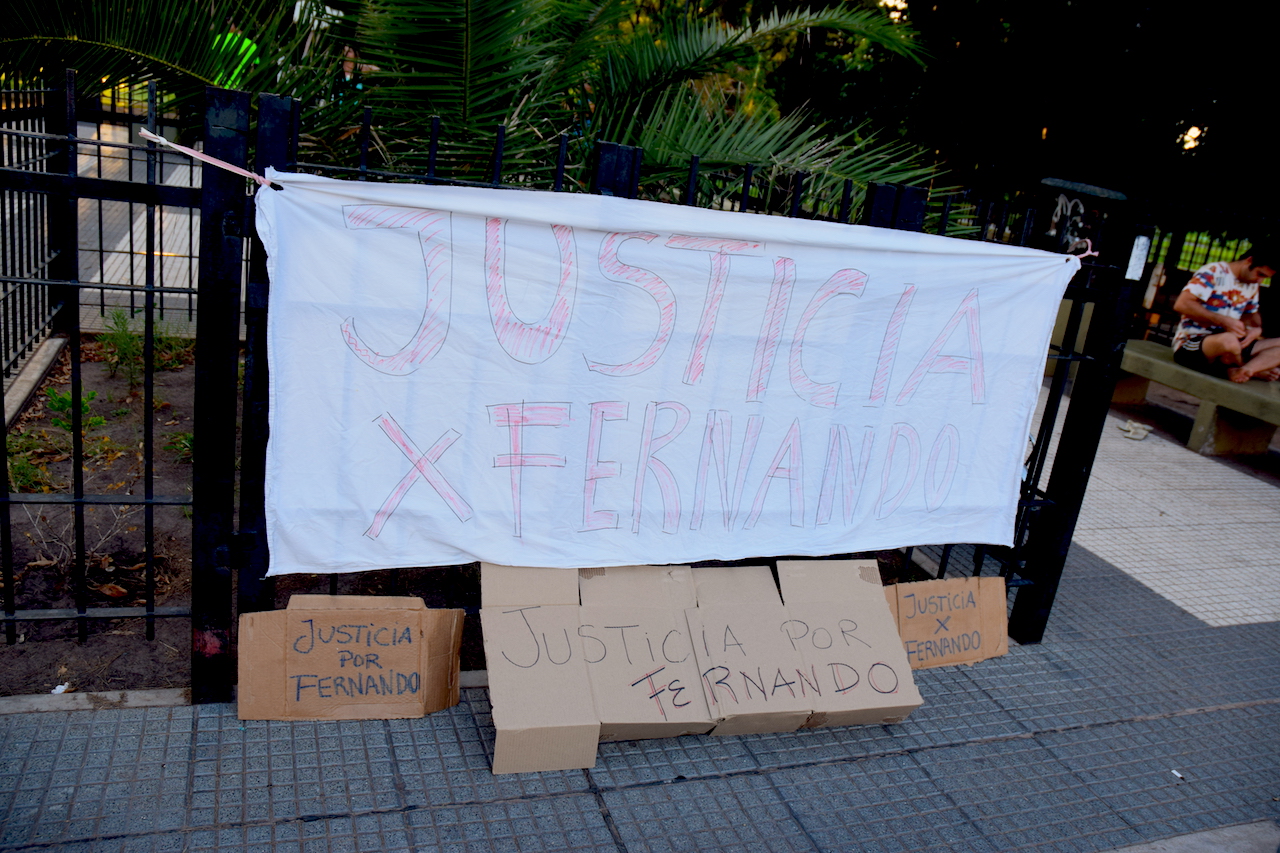 JUSTICIA
X FERNANDO
JUSTICIA
POR
FERNANDO
JUSTICIA POR
FERNANDO
JUSTICIA
X
FERNANDO